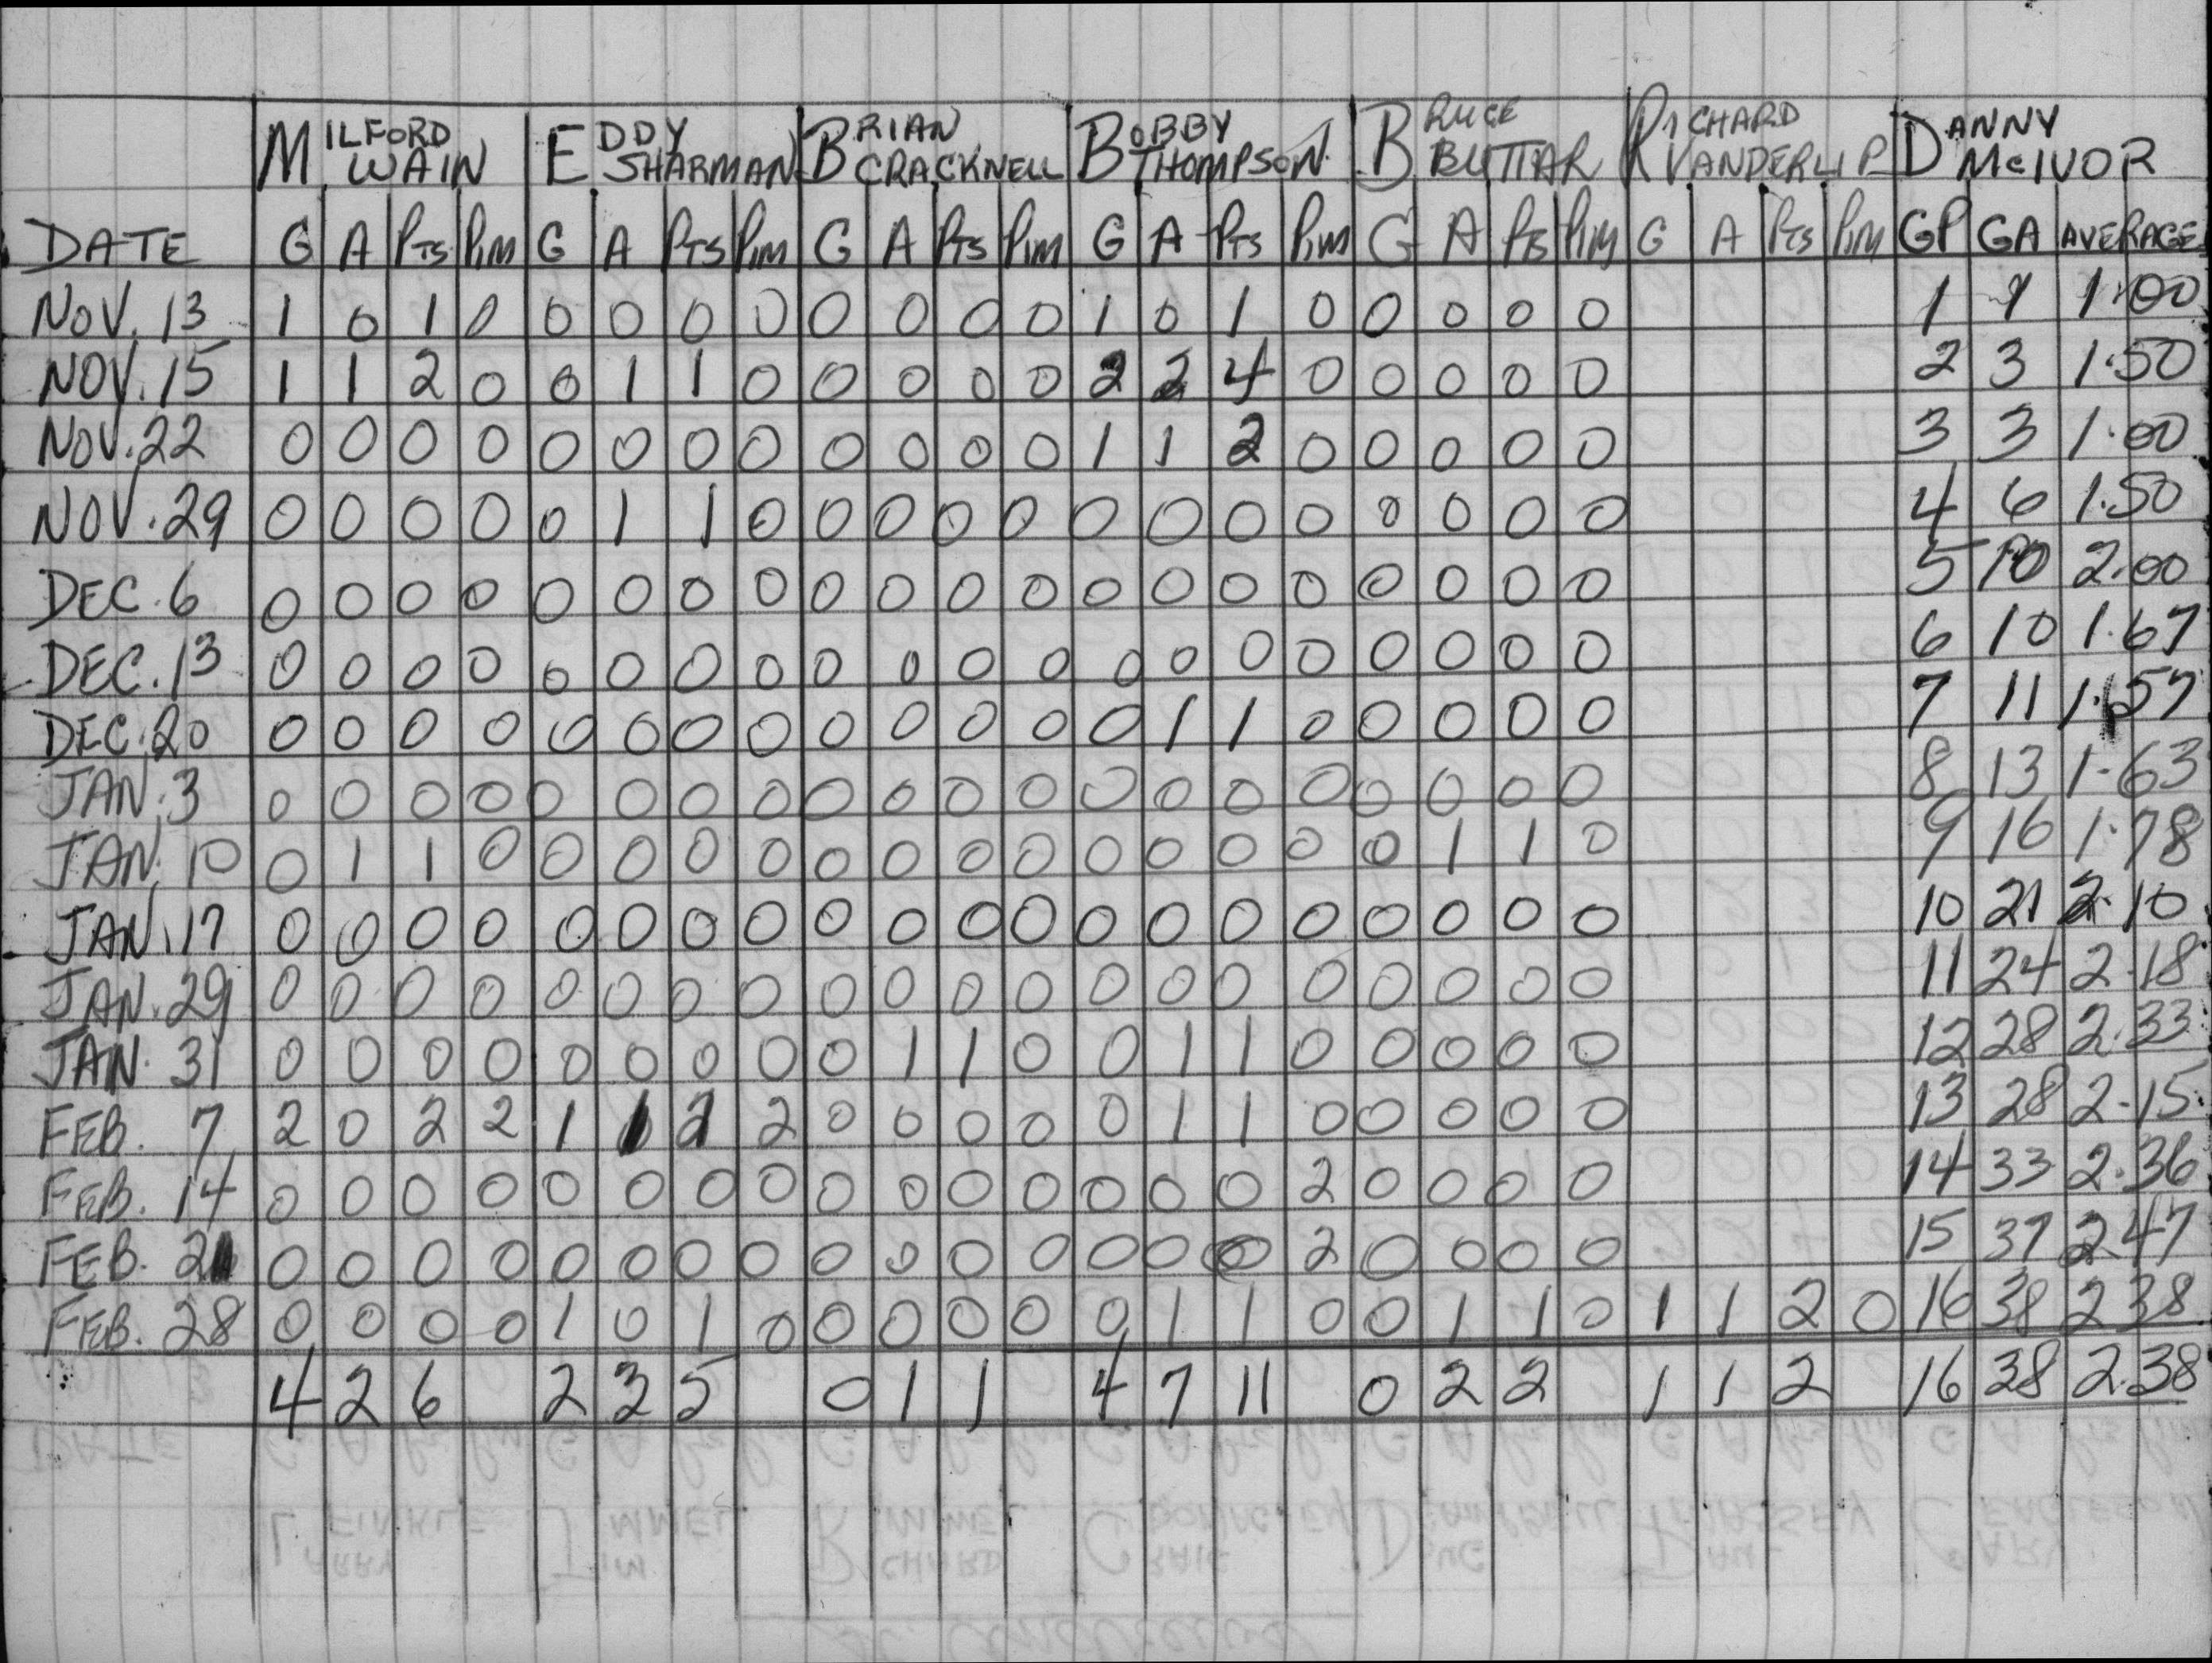 MILFORD WAIN EDDY SHARMAN BRIAN CRACKNELL BOBBY THOMPSON BRUCE BUTTAR RICHARD VANDERLIP DANNY McIVOR
DATE G A PTS PIM G A PTS PIM G A PTS PIM G A PTS PIM G A PTS PIM G A PTS PIM GP GA AVERAGE
NOV. 13 1 0 1 0 0 0 0 0 0 0 0 0 1 0 1 0 0 0 0 0 1 1 1.00
NOV. 15 1 1 2 0 0 1 1 0 0 0 0 0 2 2 4 0 0 0 0 0 2 3 1.50
NOV. 22 0 0 0 0 0 0 0 0 0 0 0 0 1 1 2 0 0 0 0 0 3 3 1.00
NOV. 29 0 0 0 0 0 1 1 0 0 0 0 0 0 0 0 0 0 0 0 0 4 6 1.50
DEC. 6 0 0 0 0 0 0 0 0 0 0 0 0 0 0 0 0 0 0 0 0 5 10 2.00
DEC. 13 0 0 0 0 0 0 0 0 0 0 0 0 0 0 0 0 0 0 0 0 6 10 1.67
DEC. 20 0 0 0 0 0 0 0 0 0 0 0 0 0 1 1 0 0 0 0 0 7 11 1.57
JAN. 3 0 0 0 0 0 0 0 0 0 0 0 0 0 0 0 0 0 0 0 0 8 13 1.63
JAN. 10 0 1 1 0 0 0 0 0 0 0 0 0 0 0 0 0 0 1 1 0 9 16 1.78
JAN. 17 0 0 0 0 0 0 0 0 0 0 0 0 0 0 0 0 0 0 0 0 10 21 2.10
JAN. 29 0 0 0 0 0 0 0 0 0 0 0 0 0 0 0 0 0 0 0 0 11 24 2.18
JAN. 31 0 0 0 0 0 0 0 0 0 1 1 0 0 1 1 0 0 0 0 0 12 28 2.33
FEB. 7 2 0 2 2 1 1 2 2 0 0 0 0 0 1 1 0 0 0 0 0 13 28 2.15
FEB. 14 0 0 0 0 0 0 0 0 0 0 0 0 0 0 0 2 0 0 0 0 14 33 2.36
FEB. 21 0 0 0 0 0 0 0 0 0 0 0 0 0 0 0 2 0 0 0 0 15 37 2.47
FEB. 28 0 0 0 0 1 0 1 0 0 0 0 0 0 1 1 0 0 1 1 0 1 1 2 0 16 38 2.38
4 2 6 2 3 5 0 1 1 4 7 11 0 2 2 1 1 2 16 38 2.38